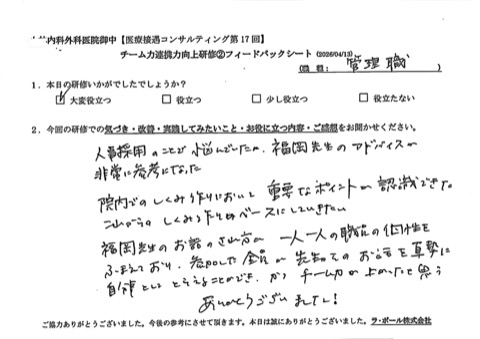 内科外科医院御中【医療接遇コンサルティング第17回】
チーム力連携力向上研修②フィードバックシート (2026/04/13)
(職種: 管理職 )
1．本日の研修いかがでしたでしょうか？
☑大変役立つ □役立つ □少し役立つ □役立たない
2．今回の研修での気づき・改善・実践してみたいこと・お役に立つ内容・ご感想をお聞かせください。
人員採用のことで悩んでいたが、福岡先生のアドバイスが
非常に参考になった
院内でのしくみ作りにおいて重要なポイントが認識できた
これからのしくみ作りのベースにしていきたい
福岡先生のお話のされ方が一人一人の職員の個性を
ふまえており、参加した全員が先生のお話を真摯に
自体としてとらえることができ、かつチーム力が上がったと思う
ありがとうございました！
ご協力ありがとうございました。今後の参考にさせて頂きます。本日は誠にありがとうございました。ラ・ポール株式会社